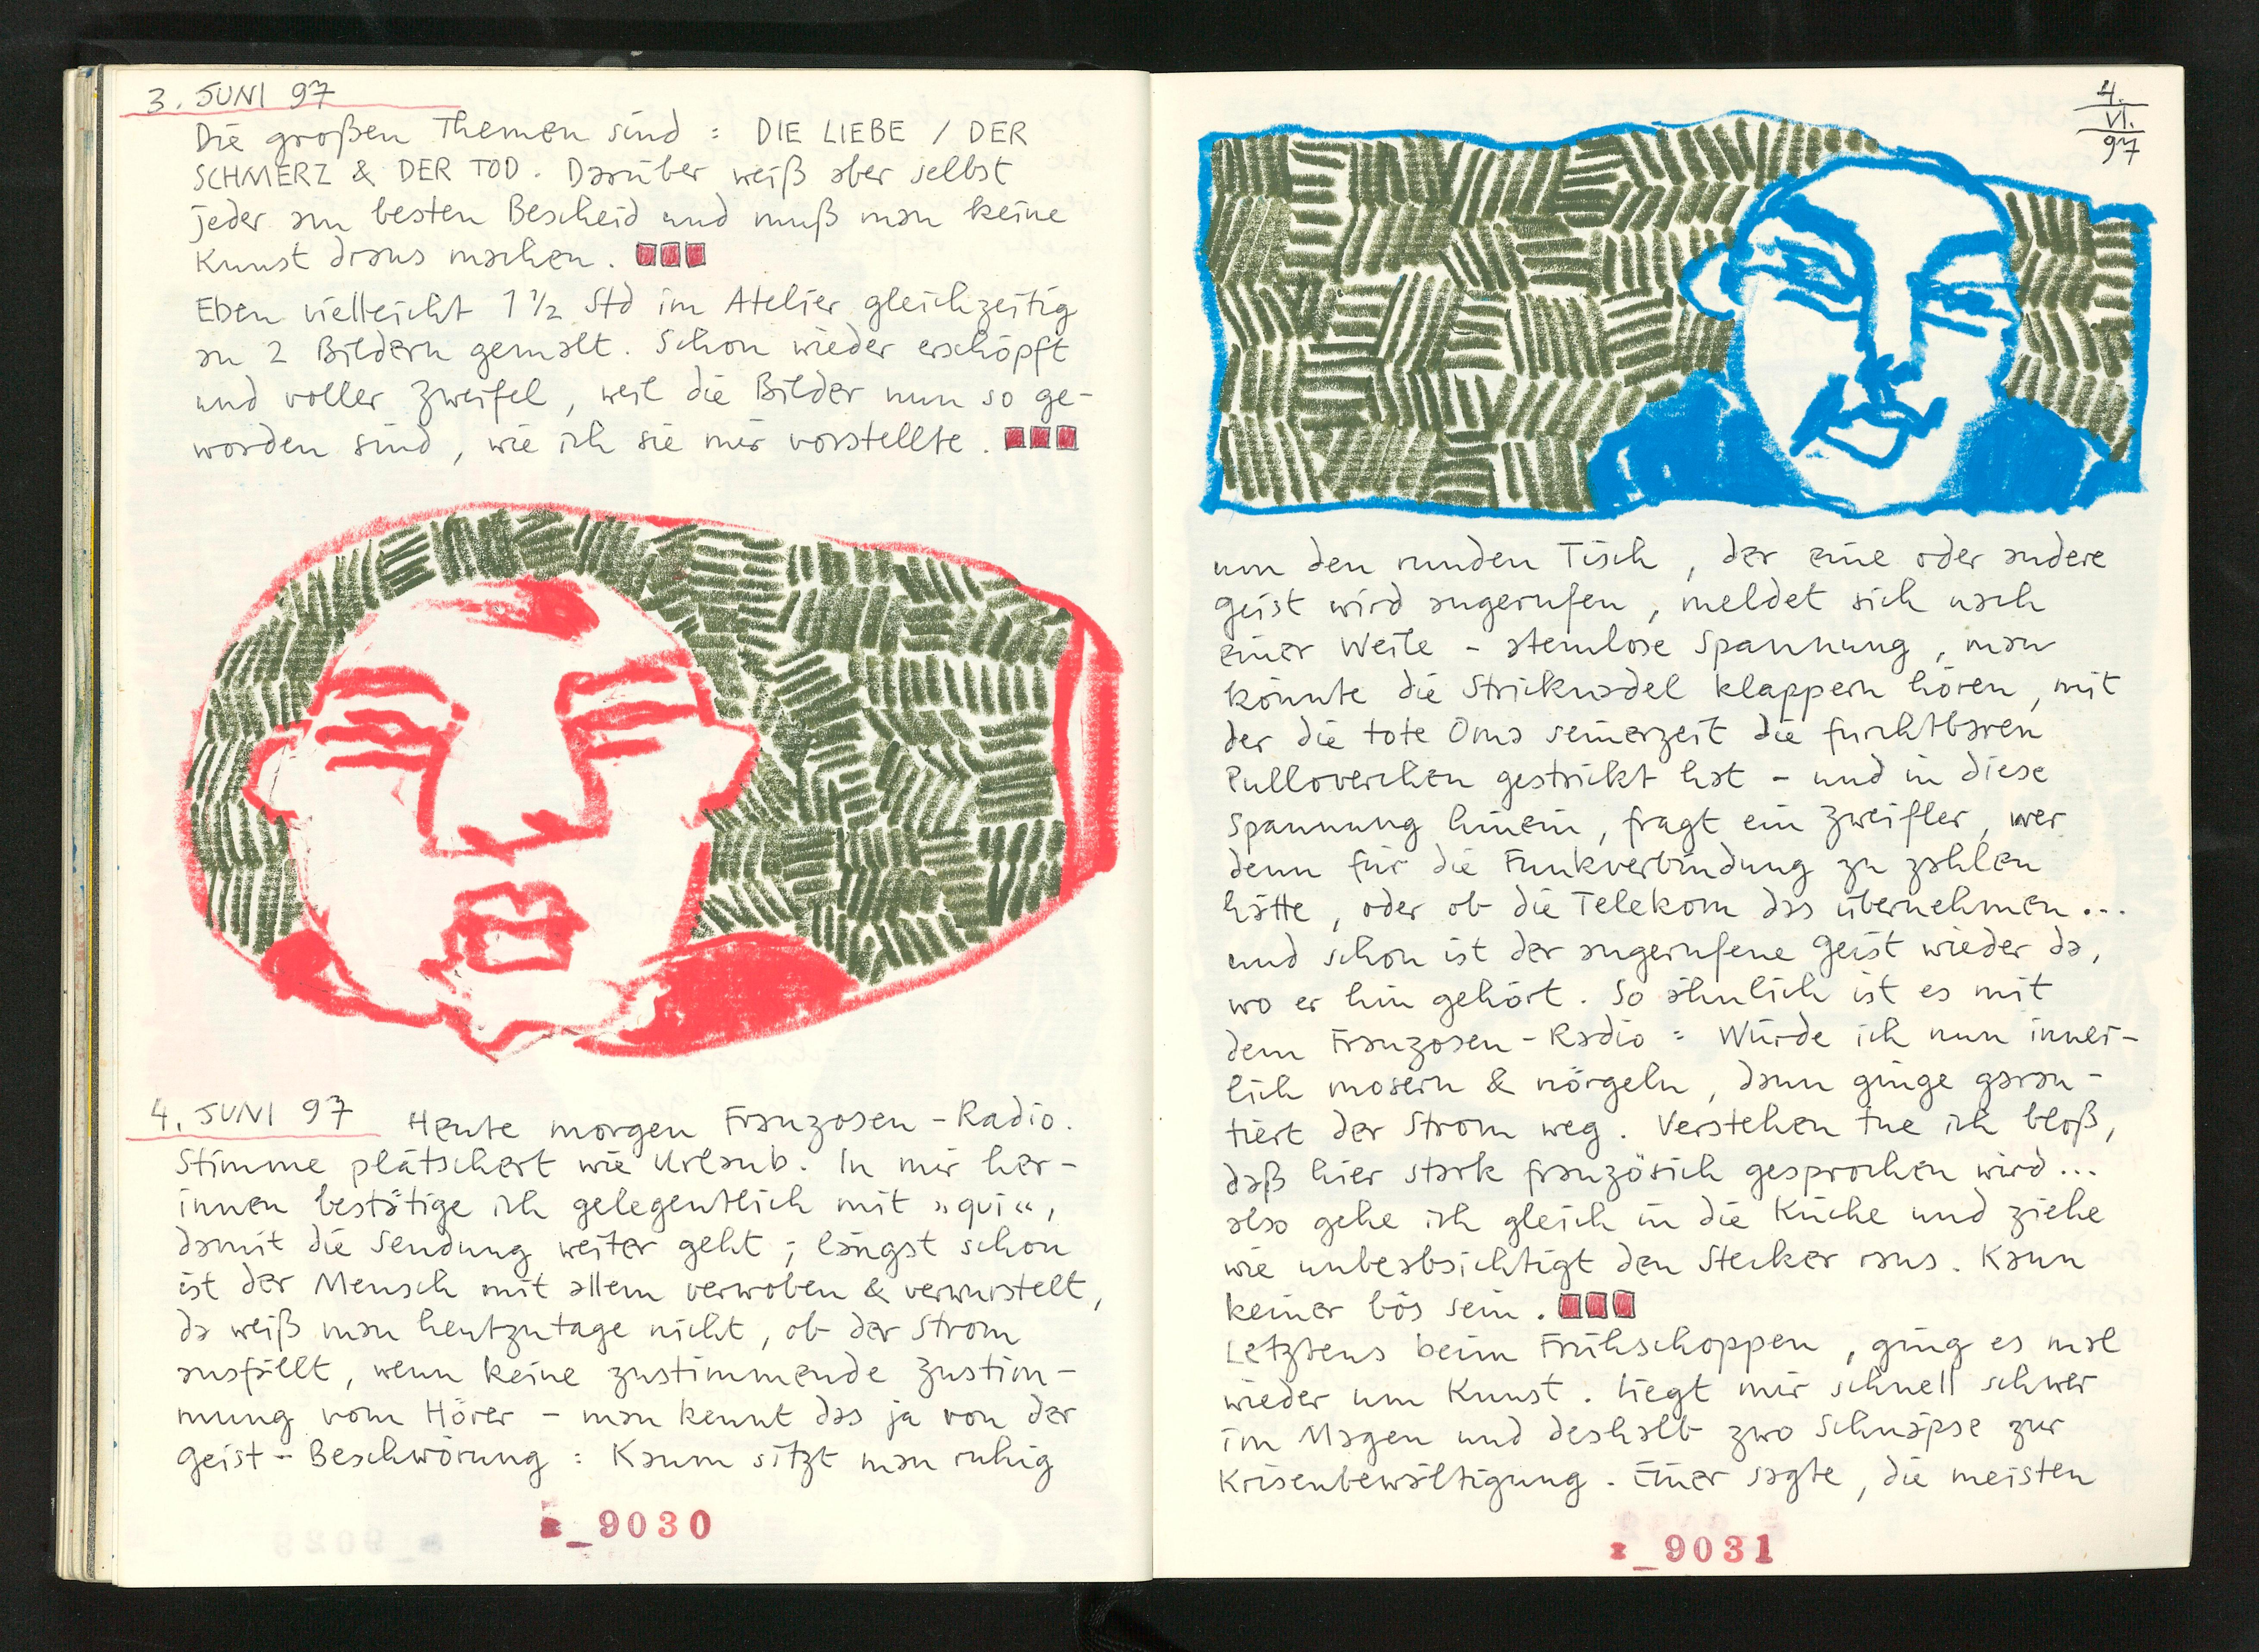 3. JUNI 97
Die großen Themen sind : DIE LIEBE / DER
SCHMERZ & DER TOD. Darüber weiß aber selbst
jeder am besten Bescheid und muß man keine
Kunst draus machen.
Eben vielleicht 1 ½ Std im Atelier gleichzeitig
an 2 Bildern gemalt. Schon wieder erschöpft
und voller Zweifel, weil die Bilder nun so ge-
worden sind, wie ich sie mir vorstellte.
4. JUNI 97 Heute morgen Franzosen-Radio.
Stimme plätschert wie Urlaub. In mir her-
innen bestätige ich gelegentlich mit »qui«,
damit die Sendung weiter geht; längst schon
ist der Mensch mit allem verwoben & verwurstelt,
da weiß man heutzutage nicht, ob der Strom
ausfällt, wenn keine zustimmende Zustim-
mung vom Hörer – man kennt das ja von der
Geist-Beschwörung : Kaum sitzt man ruhig
_9030
4.
VI.
97
um den runden Tisch, der eine oder andere
Geist wird angerufen, meldet sich nach
einer Weile – atemlose Spannung, man
könnte die Stricknadel klappern hören, mit
der die tote Oma seinerzeit die furchtbaren
Pulloverchen gestrickt hat – und in diese
Spannung hinein, fragt ein Zweifler, wer
denn für die Funkverbindung zu zahlen
hätte, oder ob die Telekom das übernehmen...
und schon ist der angerufene Geist wieder da,
wo er hin gehört. So ähnlich ist es mit
dem Franzosen-Radio : Würde ich nun inner-
lich mosern & nörgeln, dann ginge garan-
tiert der Strom weg. Verstehen tue ich bloß,
daß hier stark französich gesprochen wird...
also gehe ich gleich in die Küche und ziehe
wie unbeabsichtigt den Stecker raus. Kann
keiner bös sein.
Letztens beim Frühschoppen, ging es mal
wieder um Kunst. Liegt mir schnell schwer
im Magen und deshalb zwo Schnäpse zur
Krisenbewältigung. Einer sagte, die meisten
_9031